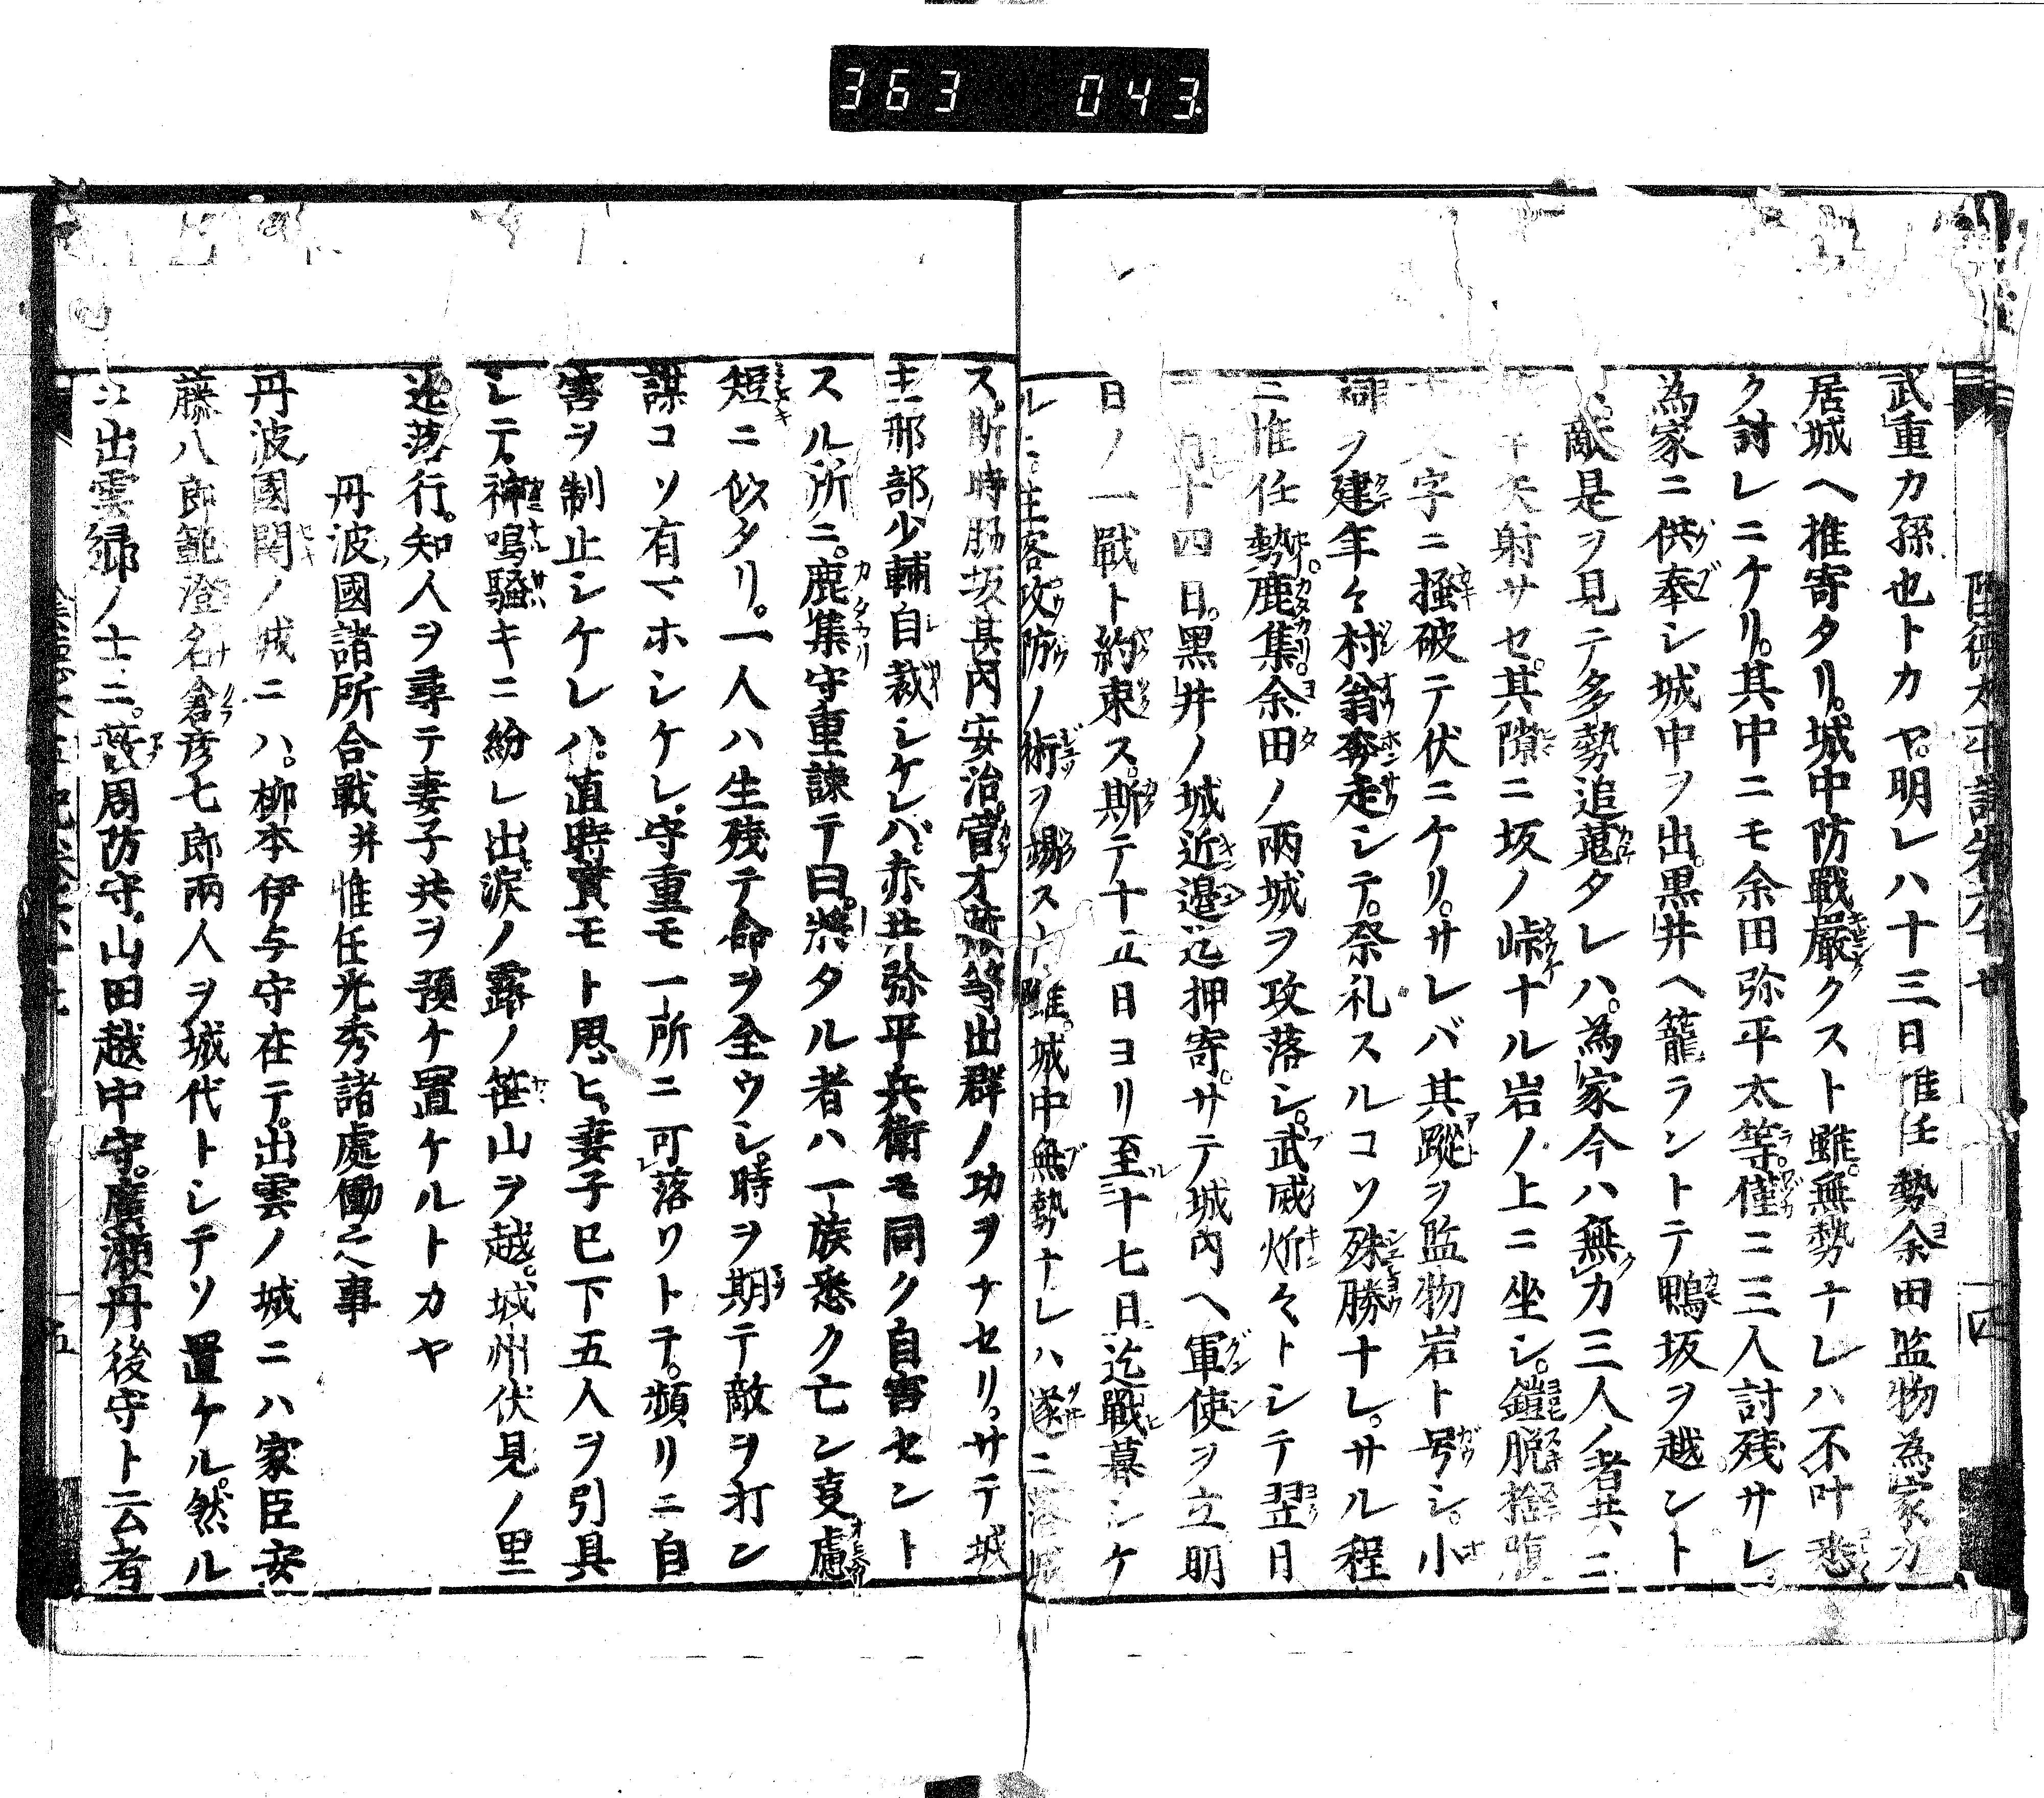 363 043
武重カ孫也トカヤ。明レハ十三日惟任勢余田監物為家カ
居城ヘ推寄タリ。城中防戰嚴クスト雖。無勢ナレハ不叶悉
ク討レニケリ。其中ニモ余田弥平太等。僅ニ三人討殘サレ。
為家ニ供奉シ城中ヲ出。黒井ヘ籠ラントテ鴨坂ヲ越ント
敵是ヲ見テ多勢追蒐タレハ。為家今ハ無力三人ノ者共ニ
矢射サセ。其隙ニ坂ノ峠ナル岩ノ上ニ坐シ。鎧脱捨腹
文字ニ掻破テ伏ニケリ。サレバ其蹤ヲ監物岩ト号シ。小
祠ノ建年々村翁奔走シテ。祭礼スルコソ殊勝ナレ。サル程
ニ惟任勢鹿集余田ノ兩城ヲ攻落シ。武威炘々トシテ翌日
十四日。黒井ノ城近邊迄押寄。サテ城内ヘ軍使ヲ立明
日ノ一戰ト約束ス。斯テ十五日ヨリ至十七日迄戰暮シケ
ルニ。主客攻防ノ術ヲ竭スト雖。城中無勢ナレハ遂ニ落城
ス。斯時肋坂甚内安治。菅才藏等出群ノ功ヲナセリ。サテ城
主刑部少輔自裁シケレバ。赤井弥平兵衛モ同ク自害セント
スル所ニ。鹿集守重諫テ曰。將タル者ハ一族悉ク亡ン夏慮
短ニ似タリ。一人ハ生殘テ命ヲ全ウシ。時ヲ期テ敵ヲ打ン
謀コソ有マホシケレ。守重モ一所ニ可落ワトテ。頻リニ自
害ヲ制止シケレハ。直時實モト思ヒ。妻子巳下五人ヲ引具
シテ。神鳴騒キニ紛レ出。涙ノ露ノ笹山ヲ越。城州伏見ノ里ニ
迯落行。知人ヲ尋テ妻子共ヲ預ケ置ケルトカヤ
丹波國諸所合戰并惟任光秀諸處働之事
丹波國関ノ城ニハ。柳本伊与守在テ。出雲ノ城ニハ家臣安
藤八郎範澄名倉彦七郎兩人ヲ城代トシテソ置ケル。然ル
ニ出雲郷ノ士ニ。薮周防守。山田越中守。廣瀬丹後守ト云者